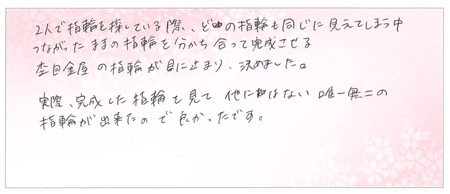 2人で指輪を探している際、、どの指輪も同じに見えてしまう中
つながったままの指輪を分かち合って完成させる
杢目金屋の指輪が目に止まり、決めました。
実際、完成した指輪を見て 他にはない 唯一無二の
指輪が出来たので良かったです。